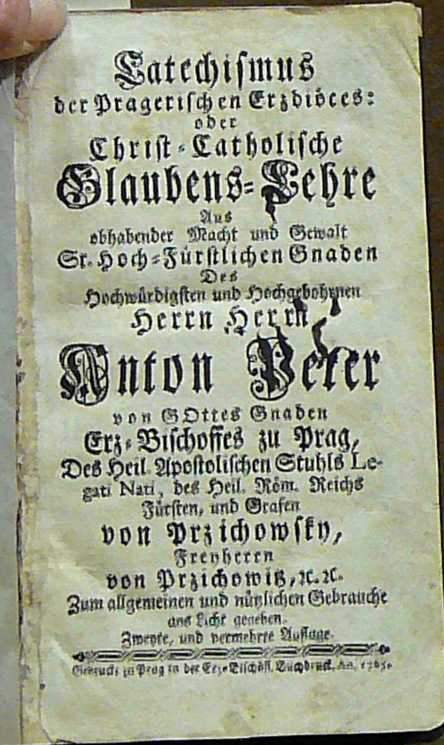 Catechismus
der Pragerischen Erzdiöces:
oder
Christ-Catholische
Glaubens-Lehre
Aus
obhabender Macht und Gewalt
Sr. Hoch-Fürstlichen Gnaden
Des
Hochwürdigsten und Hochgebohrnen
Herrn Herrn
Anton Peter
von GOttes Gnaden
Erz-Bischoffes zu Prag,
Des Heil. Apostolischen Stuhls Le-
gati Nati, des Heil. Röm. Reichs
Fürsten, und Grafen
von Przichowsky,
Freyherrn
von Przichowitz, ꝛc. ꝛc.
Zum allgemeinen und nützlichen Gebrauche
ans Licht gegeben.
Zweyte, und vermehrte Auflage.
Gedruckt zu Prag in der Erz-Bischöfl. Buchdruck. An.